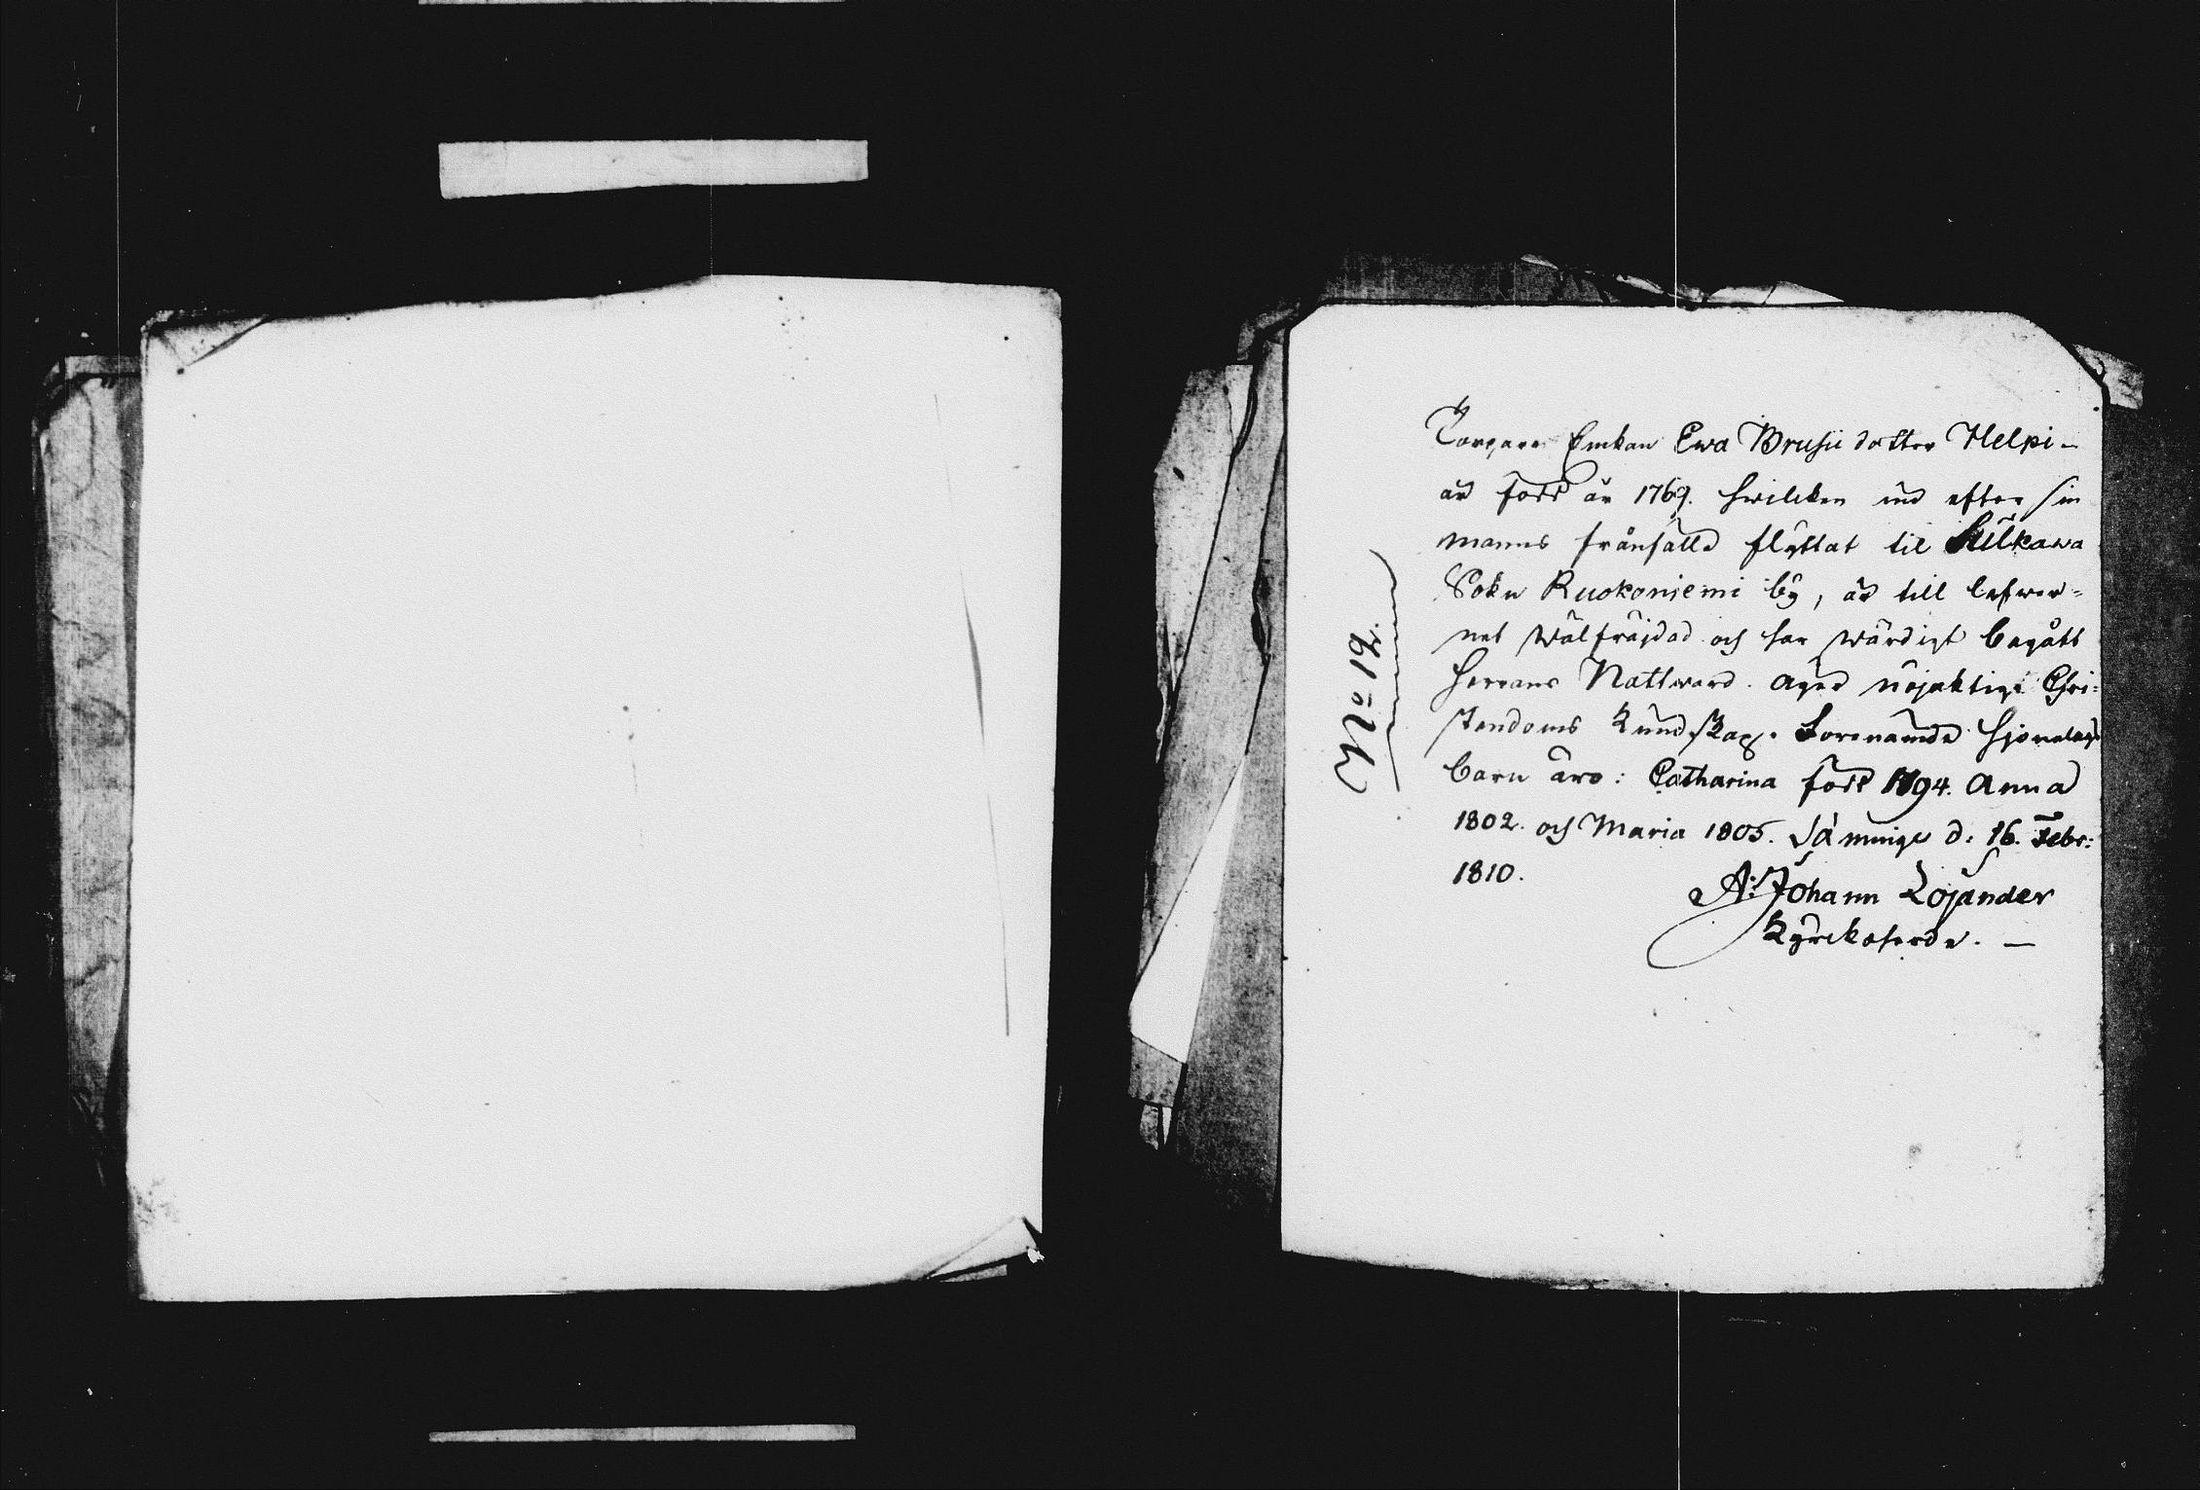 No 12.
Torpare Enkan Ewa Brusii dotter Helpi-
är född år 1769. hwilken nu efter sin
manns frånfälle flyttat til Sulkawa
Sokn Ruokoniemi by, är till lefwer=
net wälfräjdad och har wärdigt begått
Herrans Nattward. äger nöjaktige Chri=
stendoms Kundskap. Förenämde hjonelags
barn äro: Catharina född 1794. Anna
1802. och Maria 1805. Sä minge d: 16. Febr:
1810.
A: Johann Löjander
Kyrckoherde. —